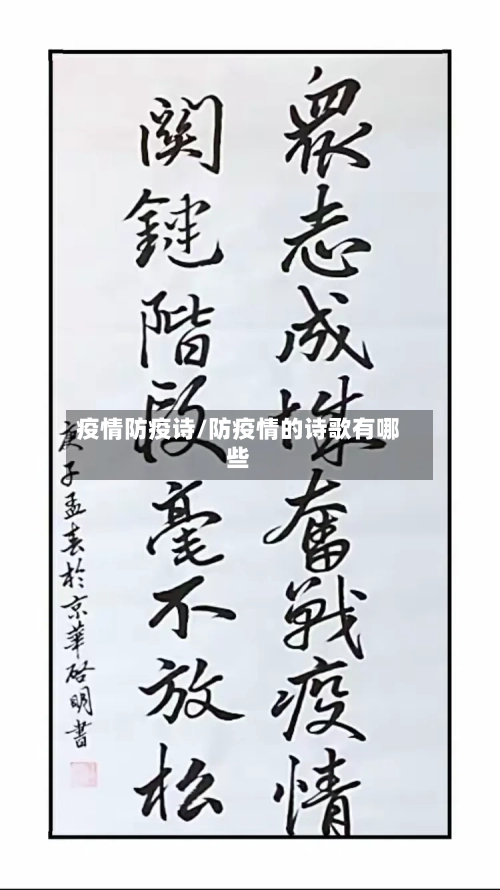 眾志成城奮戰疫情
關鍵階段毫不放松
庚子孟春於京華啓明書
疫情防疫诗/防疫情的诗歌有哪
些